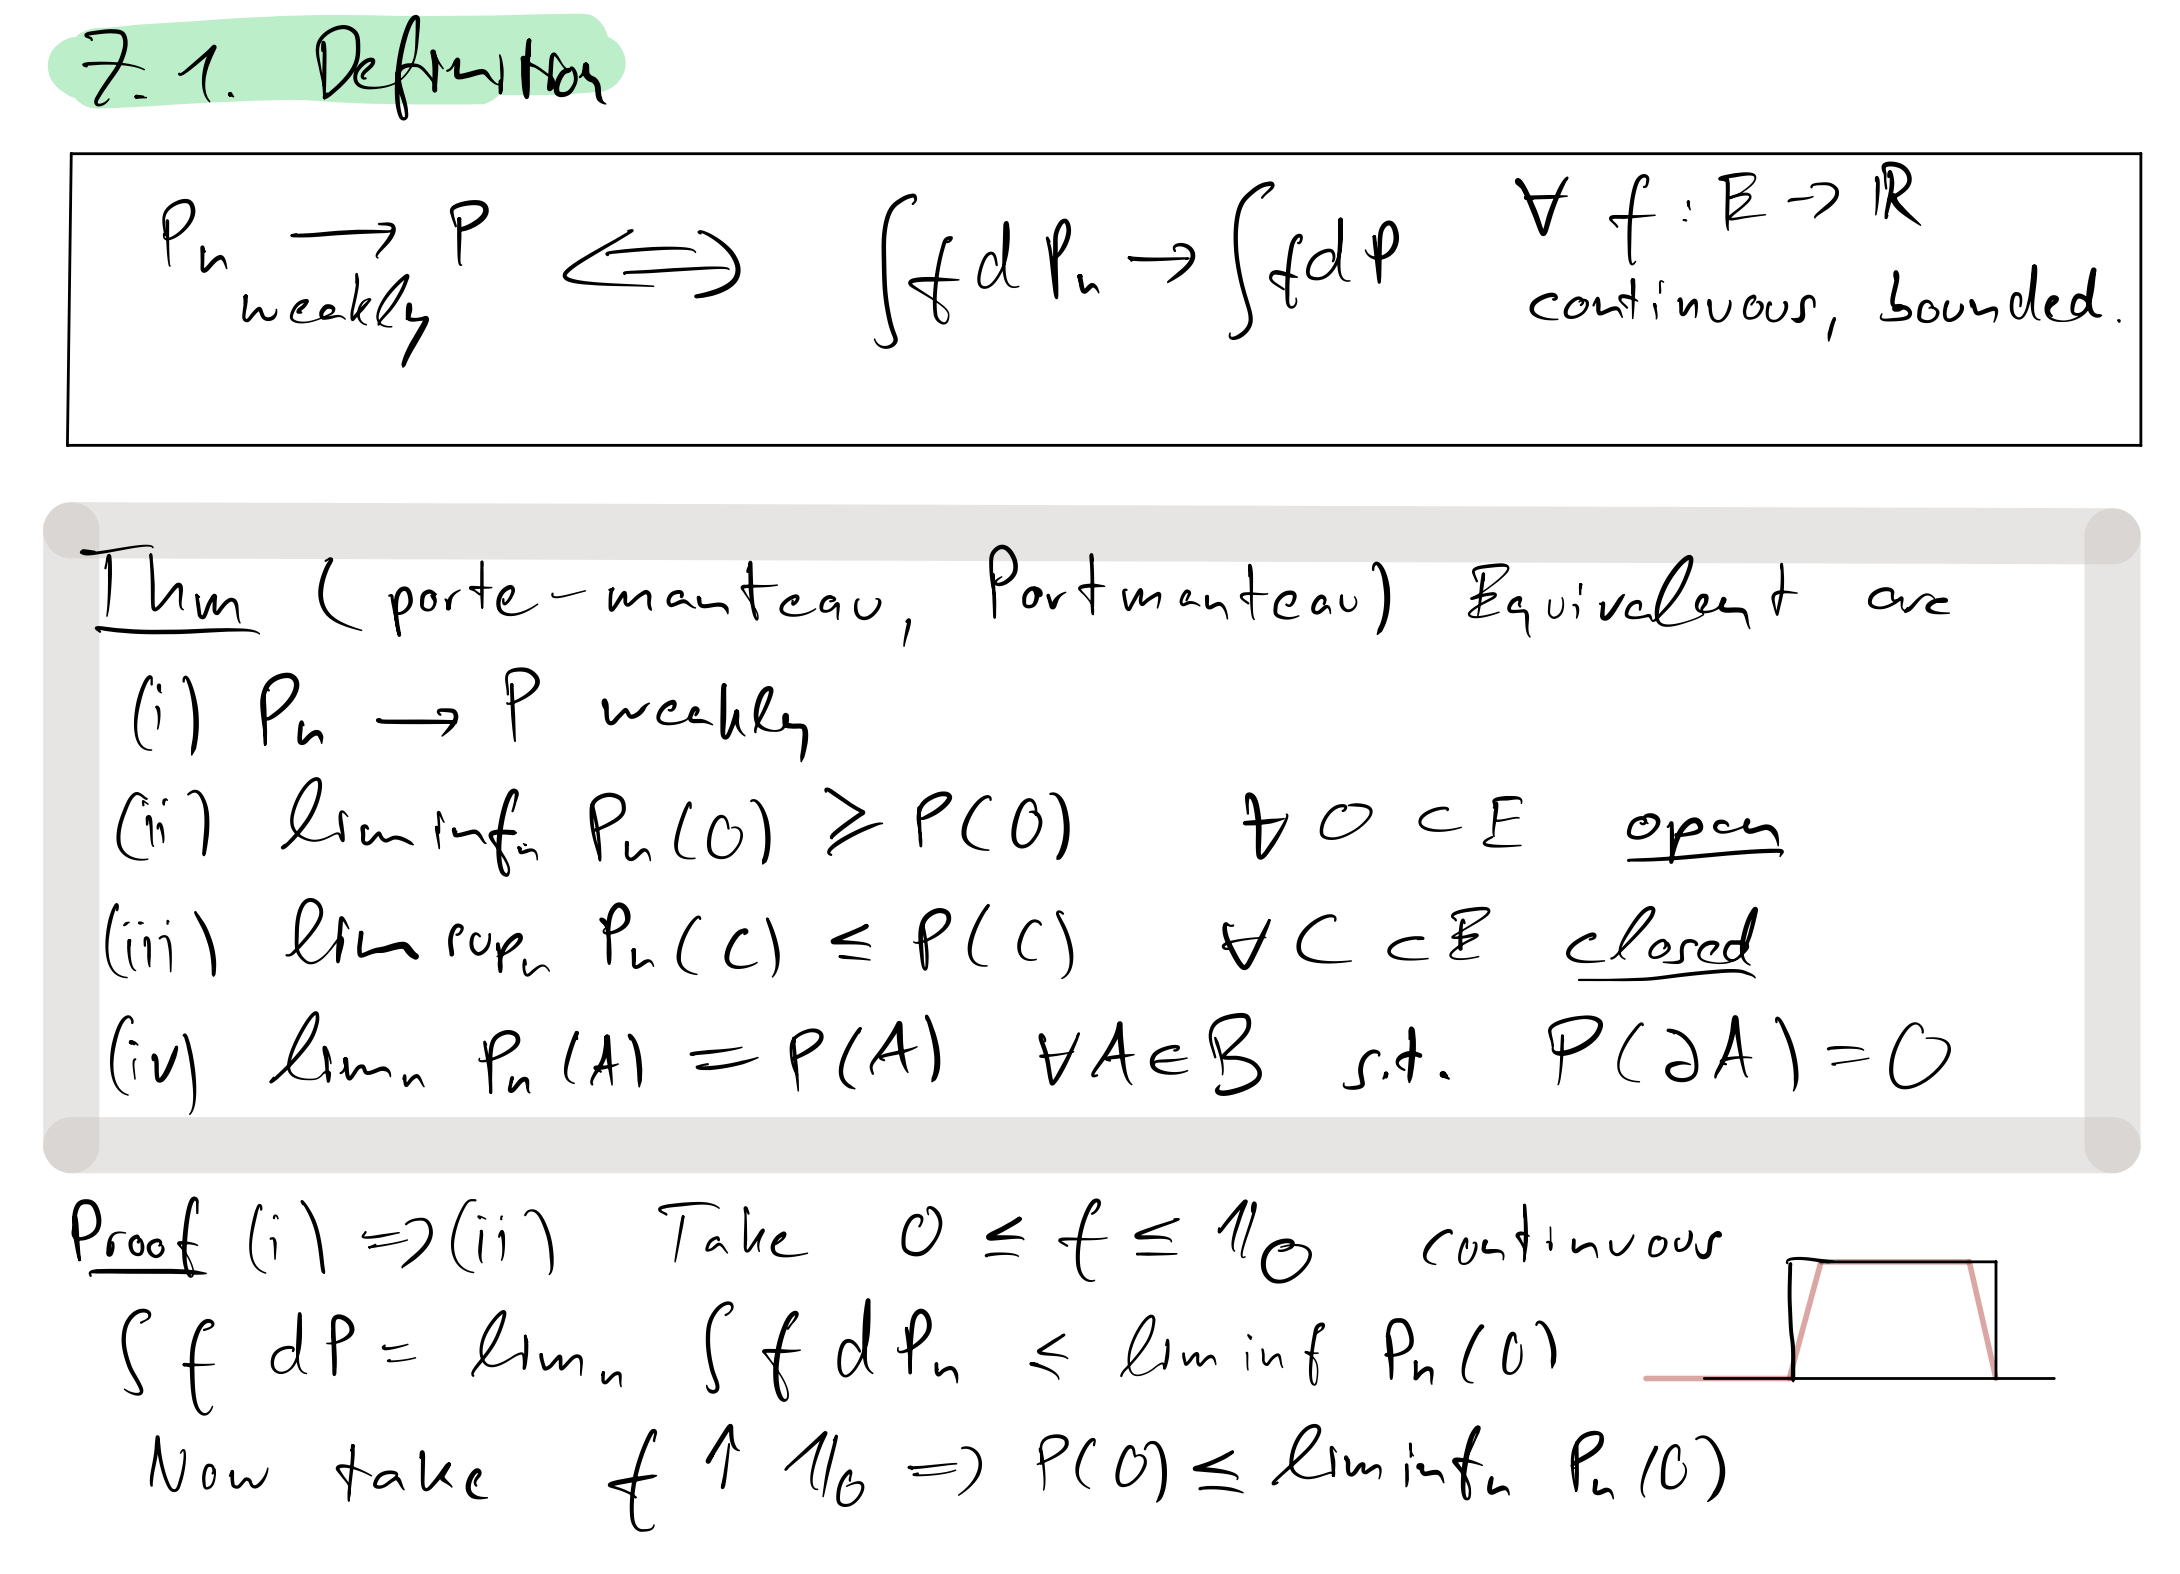 7.1. Definition
Pₙ → P weakly ⟺ ∫ f dPₙ → ∫ f dP ∀ f : E → ℝ
continuous, bounded.
Thm (porte-manteau, Portmanteau) Equivalent are
(i) Pₙ → P weakly
(ii) lim infₙ Pₙ(O) ≥ P(O) ∀ O ⊂ E open
(iii) lim supₙ Pₙ(C) ≤ P(C) ∀ C ⊂ E closed
(iv) limₙ Pₙ(A) = P(A) ∀ A ∈ B s.t. P(∂A) = 0
Proof (i) ⇒ (ii) Take 0 ≤ f ≤ 𝟙_O continuous
∫ f dP = limₙ ∫ f dPₙ ≤ lim inf Pₙ(O)
Now take f ↑ 𝟙_O ⇒ P(O) ≤ lim infₙ Pₙ(O)